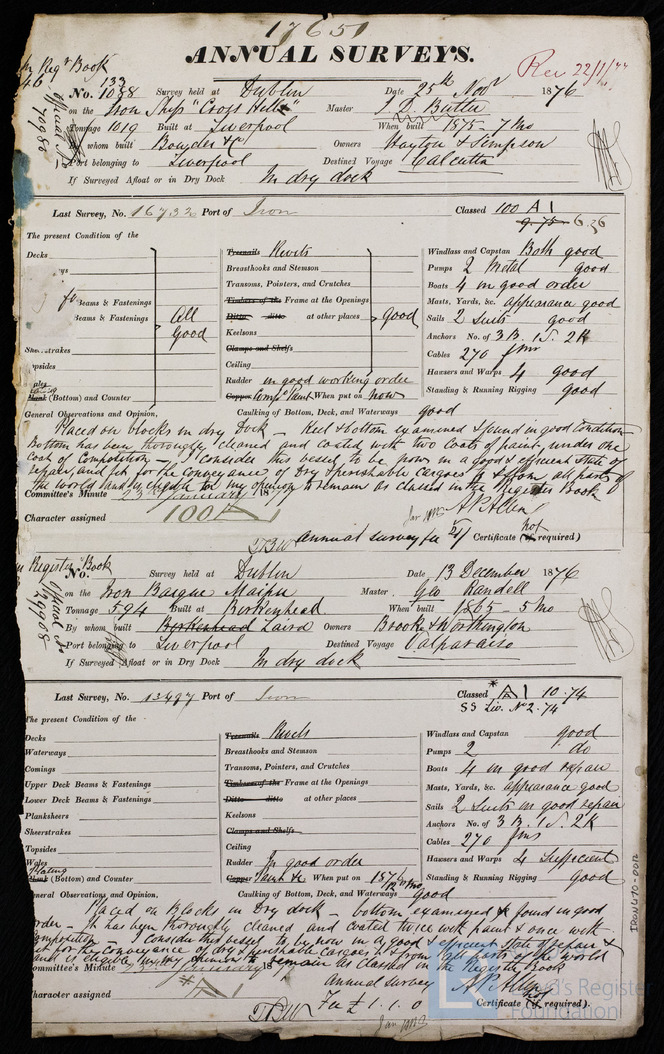 17651
ANNUAL SURVEYS.
Rec 22/1/77
Reg Book
133
No. 1088 Survey held at Dublin Date 25th Novr 1876
on the Iron Ship "Cross Hill" Master J. D. Butter
Tonnage 1019 Built at Liverpool When built 1875 - 7 mo
whom built Bowdler &C Owners Hayton & Simpson
Port belonging to Liverpool Destined Voyage Calcutta
If Surveyed Afloat or in Dry Dock In dry dock
Last Survey, No. 16732 Port of Iron Classed 100 A 1
9.75 6.76
The present Condition of the
Decks
Beams & Fastenings
Beams & Fastenings
All Good
Strakes
opsides
ales
Plank (Bottom) and Counter
Treenails Rivets
Breasthooks and Stemson
Transoms, Pointers, and Crutches
Timbers of the Frame at the Openings
Ditto ditto at other places good
Keelsons
Clamps and Shelfs
Ceiling
Rudder in good working order
Copper Comp Paint When put on now
Caulking of Bottom, Deck, and Waterways good
Windlass and Capstan Both good
Pumps 2 Metal good
Boats 4 in good order
Masts, Yards, &c. appearance good
Sails 2 Suits good
Anchors No. of 3 B. 1 S. 2 K
Cables 270 fms
Hawsers and Warps 4 good
Standing & Running Rigging good
General Observations and Opinion,
Placed on blocks in dry dock - Keel & bottom examined & found in good condition
Bottom has been thoroughly cleaned and coated with two coats of paint, under one
coat of Composition - I consider this vessel to be now in a good & efficient state of
repair, and fit for the conveyance of Dry & perishable Cargoes to & from all parts of
the world and is eligible in my opinion to remain as classed in the Register Book
Committee's Minute 23rd January 1877
Character assigned 100 A 1
Annual survey fee Certificate (if not required)
Register Book
No. Survey held at Dublin Date 13 December 1876
on the Iron Barque Maipu Master Geo Randell
Tonnage 594 Built at Birkenhead When built 1865 - 5 mo
By whom built Birkenhead Laird Owners Brook & Worthington
Port belonging to Liverpool Destined Voyage Valparaiso
If Surveyed Afloat or in Dry Dock In dry dock
Official No 29108
Last Survey, No. 13497 Port of Iron Classed A 1 10.74
SS Liv. No 2.74
The present Condition of the
Decks
Waterways
Comings
Upper Deck Beams & Fastenings
Lower Deck Beams & Fastenings
Planksheers
Sheerstrakes
Topsides
Wales
Plating
Plank (Bottom) and Counter
Treenails Rivets
Breasthooks and Stemson
Transoms, Pointers, and Crutches
Timbers of the Frame at the Openings
Ditto ditto at other places
Keelsons
Clamps and Shelfs
Ceiling
Rudder In good order
Copper Paint &c When put on 1876
Caulking of Bottom, Deck, and Waterways good
Windlass and Capstan good
Pumps 2 do
Boats 4 in good repair
Masts, Yards, &c. appearance good
Sails 2 Suits in good repair
Anchors No. of 3 B. 1 S. 2 K
Cables 270 fms
Hawsers and Warps 4 Sufficient
Standing & Running Rigging good
General Observations and Opinion,
Placed on Blocks in Dry dock - bottom examined & found in good
order - It has been thoroughly cleaned and coated twice with paint & once with
Composition - I consider this vessel to be now in a good efficient State of repair &
fit for the Conveyance of dry & perishable Cargoes to & from all parts of the world
and is eligible in my opinion to remain as classed in the Register Book
Committee's Minute January 18
annual survey
Character assigned A 1
Fee £ 1.1.0 Certificate (if not required).
IRON670-0012
Lloyd's Register
Foundation